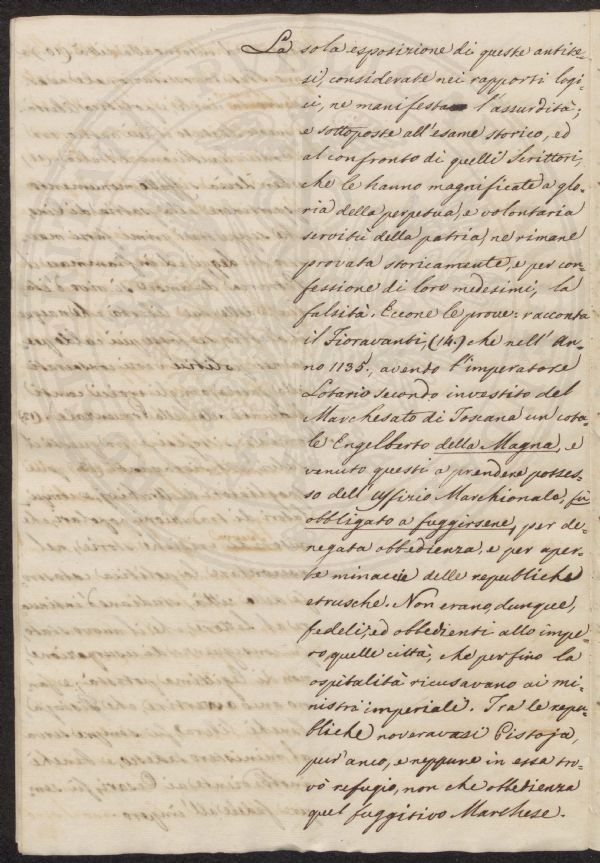 La sola esposizione di queste antite-
si, considerate nei rapporti logi-
ci, ne manifesta l'assurdità;
e sottoposte all'esame storico, ed
al confronto di quelli Scrittori,
che le hanno magnificate a glo-
ria della perpetua, e volontaria
servitù della patria, ne rimane
provata storicamente, e per con-
fessione di loro medesimi, la
falsità. Eccone le prove: racconta
il Fioravanti, (14.) che nell'An-
no 1135., avendo l'imperatore
Lotario secondo investito del
Marchesato di Toscana un cota-
le Engelberto della Magna, e
venuto questi a prendere posses-
so dell'Uffizio Marchionale, fù
obbligato a fuggirsene, per de-
negata obbedienza, e per aper-
te minaccie delle republiche
etrusche. Non erano, dunque,
fedeli, ed obbedienti allo impe-
ro, quelle città, che perfino la
ospitalità ricusavano ai mi-
nistri imperiali. Tra le repu-
bliche noveravasi Pistoja,
pur'anco, e neppure in essa tro-
vò refugio, non che obbedienza
quel fuggitivo Marchese.